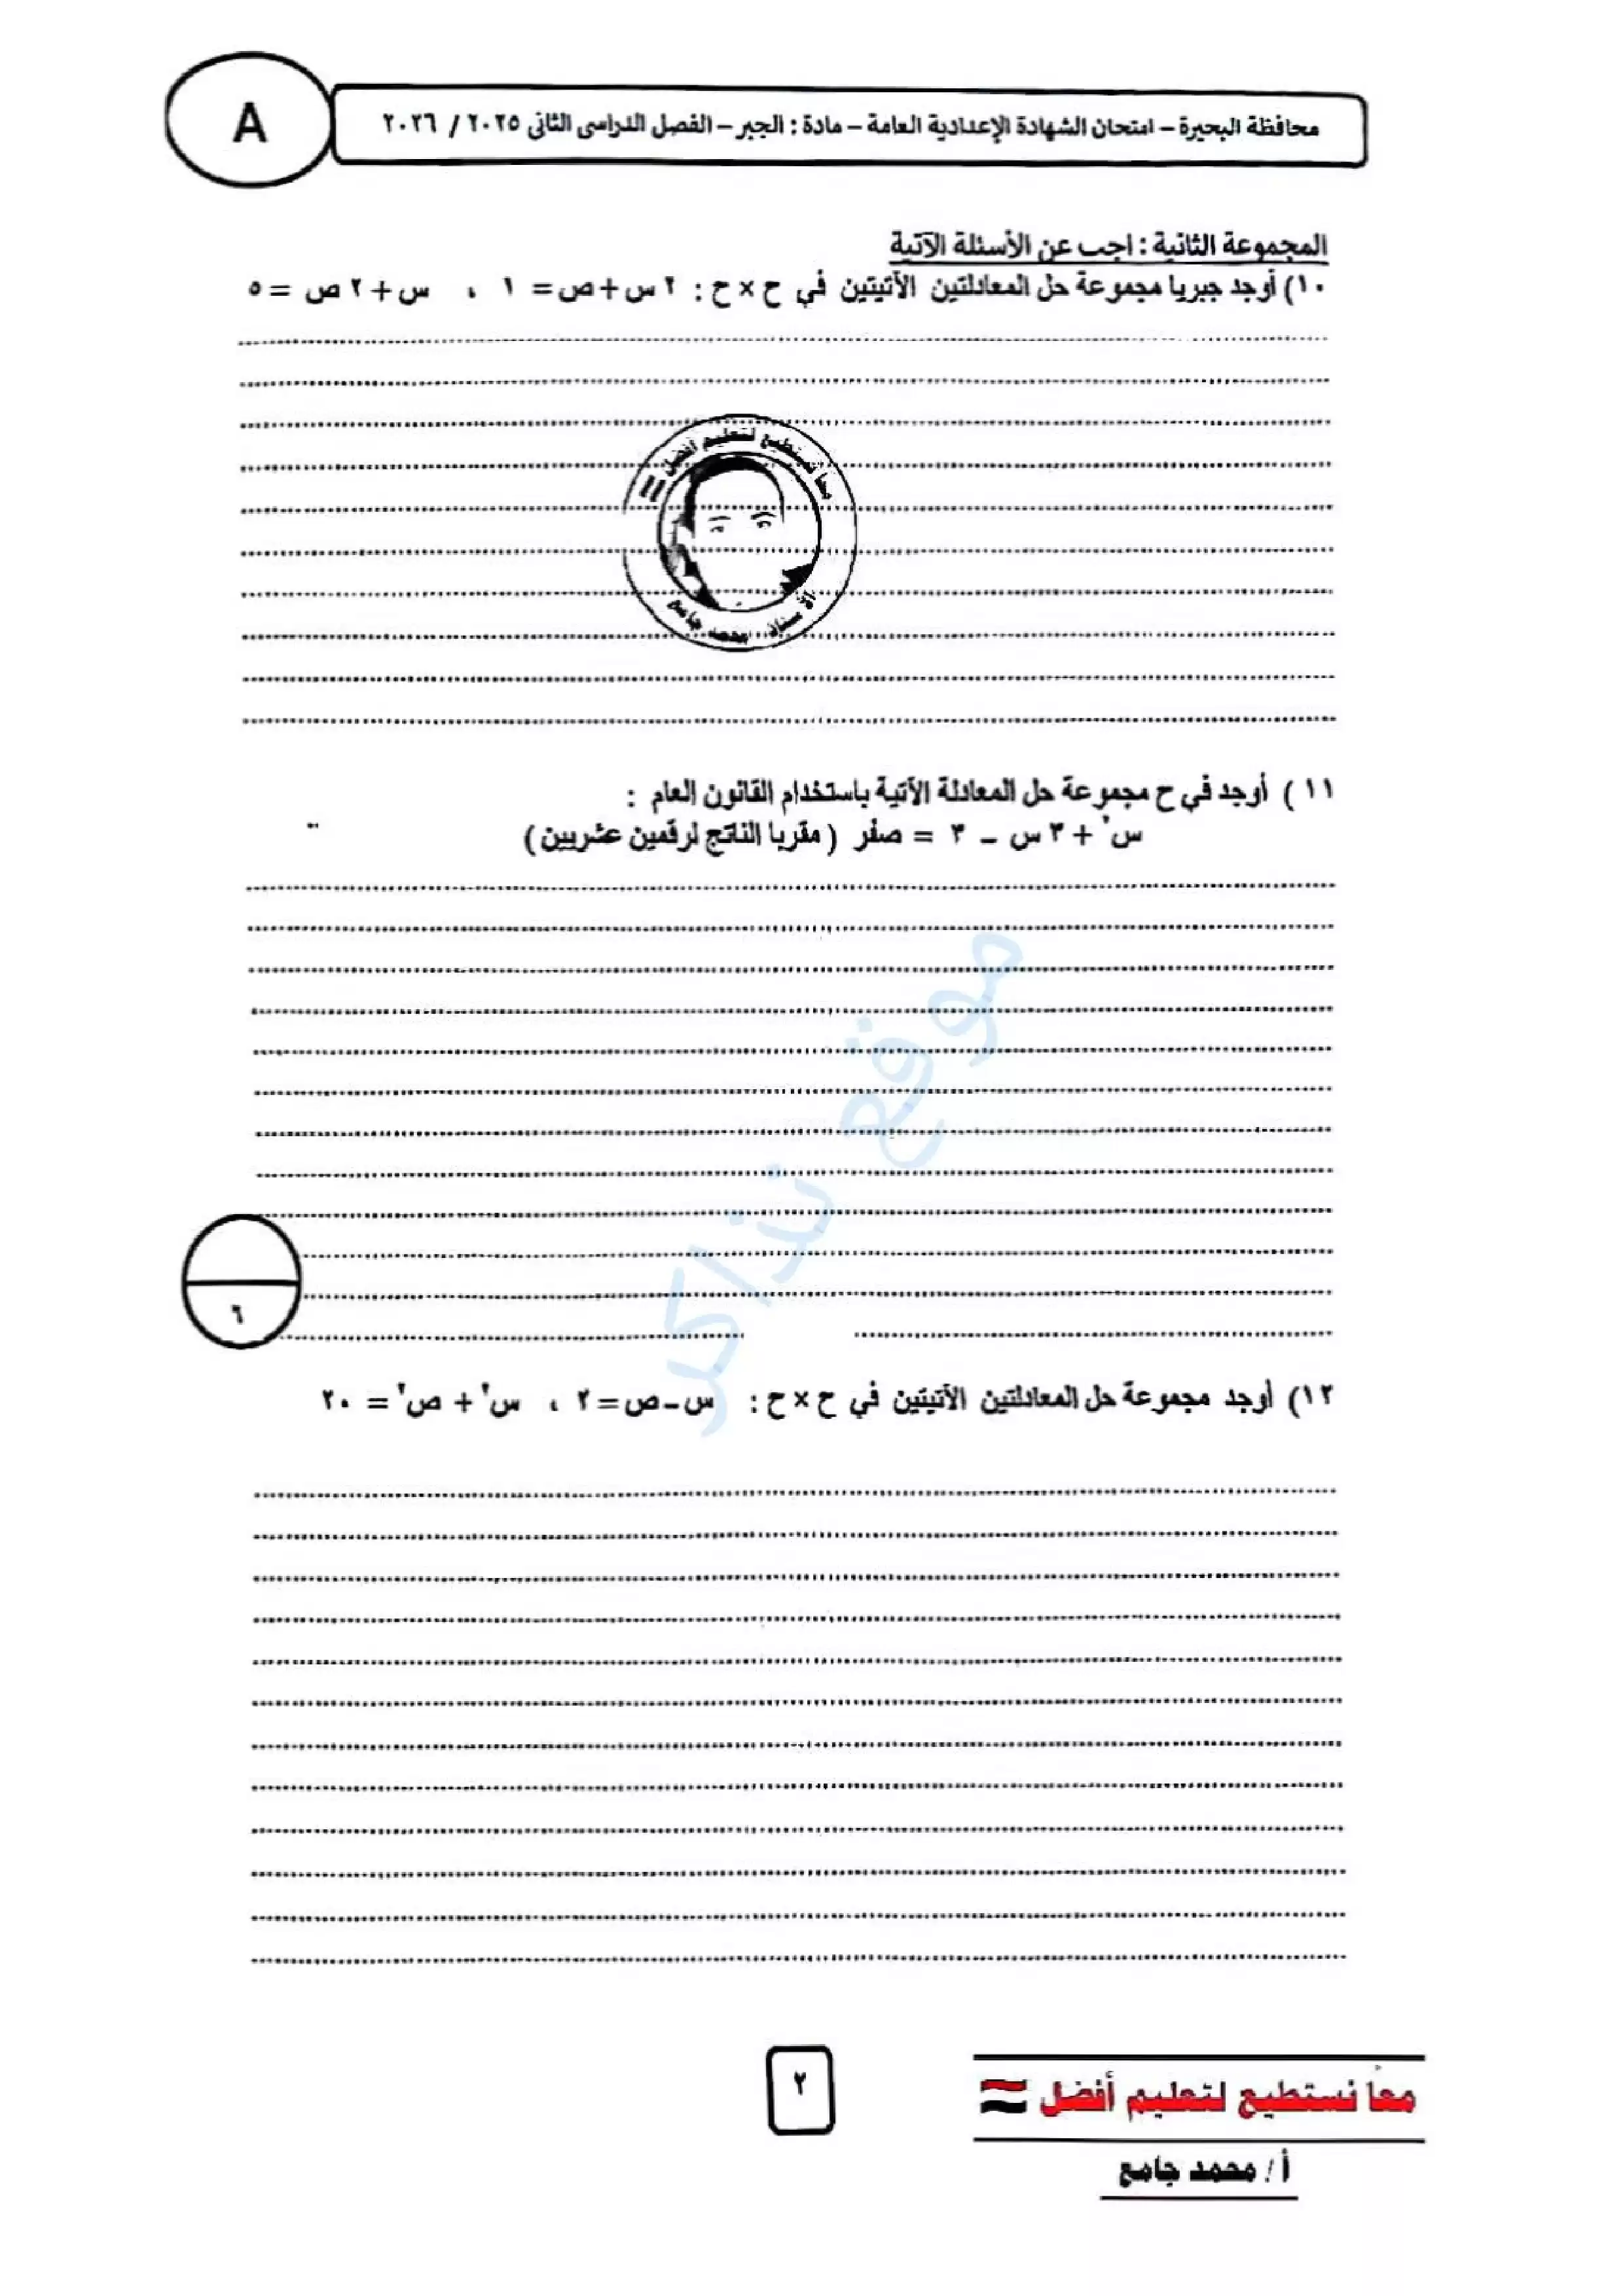 A
محافظة البحيرة – امتحان الشهادة الإعدادية العامة – مادة : الجبر – الفصل الدراسى الثانى ٢٠٢٥ / ٢٠٢٦
المجموعة الثانية : اجب عن الأسئلة الآتية
١٠) أوجد جبريا مجموعة حل المعادلتين الأتيتين في ح × ح : ٢ س + ص = ١ ، س + ٢ ص = ٥
معا نستطيع لتعليم أفضل
الأستاذ محمد جامع
١١ ) أوجد في ح مجموعة حل المعادلة الآتية باستخدام القانون العام :
س٢ + ٣ س – ٣ = صفر ( مقربا الناتج لرقمين عشريين )
موقع نذاكر
٦
١٢) أوجد مجموعة حل المعادلتين الأتيتين في ح × ح : س – ص = ٢ ، س٢ + ص٢ = ٢٠
٢
معاً نستطيع لتعليم أفضل
أ / محمد جامع